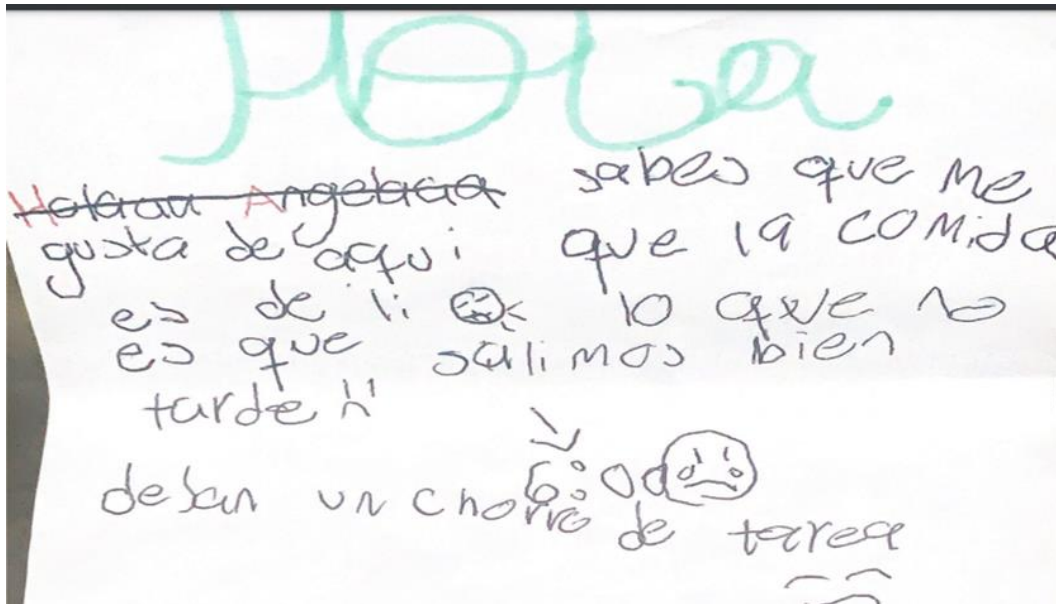 Hola
Holaau Angelaaa sabes que me
gusta de aqui que la comida
es de li lo que no
es que salimos bien
tarde n'
6:00
dejan un chorro de tarea